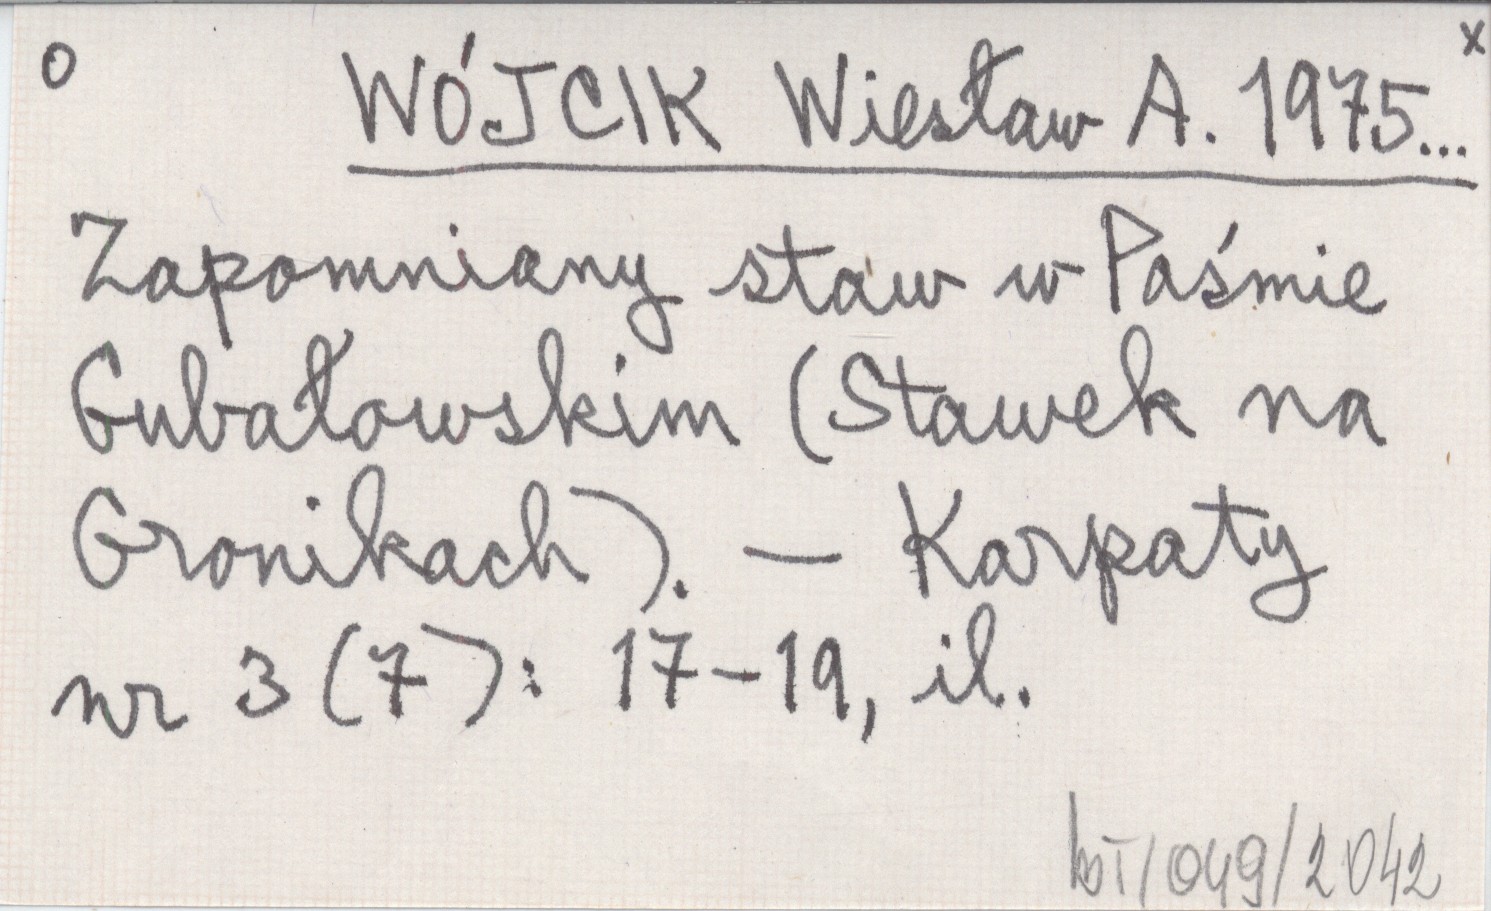 o WÓJCIK Wiesław A. 1975... x
Zapomniany staw w Paśmie
Gubałowskim (Stawek na
Gronikach). — Karpaty
nr 3 (7): 17-19, il.
/049/2042